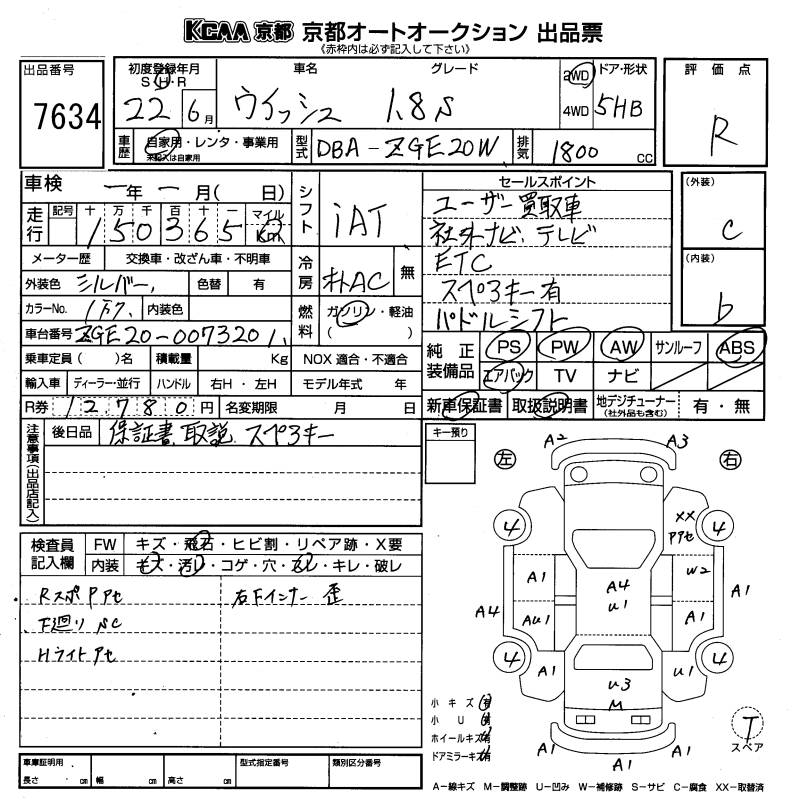 KCAA 京都 京都オートオークション 出品票
《赤枠内は必ず記入して下さい》
出品番号
7634
初度登録年月 車名 グレード 2WD ドア・形状
S・H・R
22 6月 ウイッシュ 1.8S 4WD 5HB
車歴 自家用・レンタ・事業用 型式 DBA-ZGE20W 排気 1800 CC
未記入は自家用
評価点
R
車検 ー年ー月( 日)
走行 記号 十万千百十一 マイル
150365 Km
メーター歴 交換車・改ざん車・不明車
外装色 シルバー 色替 有
カラーNo. 1F7 内装色
車台番号 ZGE20-0073201
乗車定員( )名 積載量 Kg
輸入車 ディーラー・並行 ハンドル 右H・左H
R券 12780円 名変期限 月 日
シフト iAT
冷房 オートAC 無
燃料 ガソリン・軽油
( )
NOX適合・不適合
モデル年式 年
セールスポイント
ユーザー買取車
社外ナビ、テレビ
ETC
スペアキー有
パドルシフト
(外装)
C
(内装)
b
純正装備品 PS PW AW サンルーフ ABS
エアバック TV ナビ
新車保証書 取扱説明書 地デジチューナー 有・無
(社外品も含む)
注意事項(出品店記入)
後日品 保証書 取説 スペアキー
キー預り
検査員記入欄
FW キズ・飛石・ヒビ割・リペア跡・X要
内装 キズ・汚れ・コゲ・穴・スレ・キレ・破レ
RスポPアセ 右Fインナー歪
下廻りSC
Hライトアセ
左 右
A2 A3
4 4
XX
Pアセ
A1 W2
A4
U1
A4 AU1 A1 A1
4 4
A1 U1
U3
M
A1 A1
小キズ 有
小U 有
ホイールキズ 有
ドアミラーキズ 有
T
スペア
車庫証明用 型式指定番号 類別区分番号
長さ cm 幅 cm 高さ cm
A-線キズ M-調整跡 U-凹み W-補修跡 S-サビ C-腐食 XX-取替済